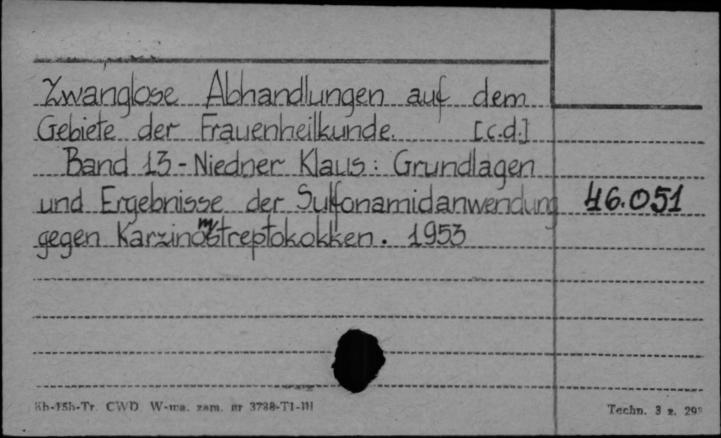 Zwanglose Abhandlungen auf dem
Gebiete der Frauenheilkunde. [c.d.]
Band 13 - Niedner Klaus : Grundlagen
und Ergebnisse der Sulfonamidanwendung 46.051
gegen Karzinomstreptokokken. 1953
Kh-15h-Tr. CWD W-wa. zam. nr 3788-T1-III Techn. 3 z. 29